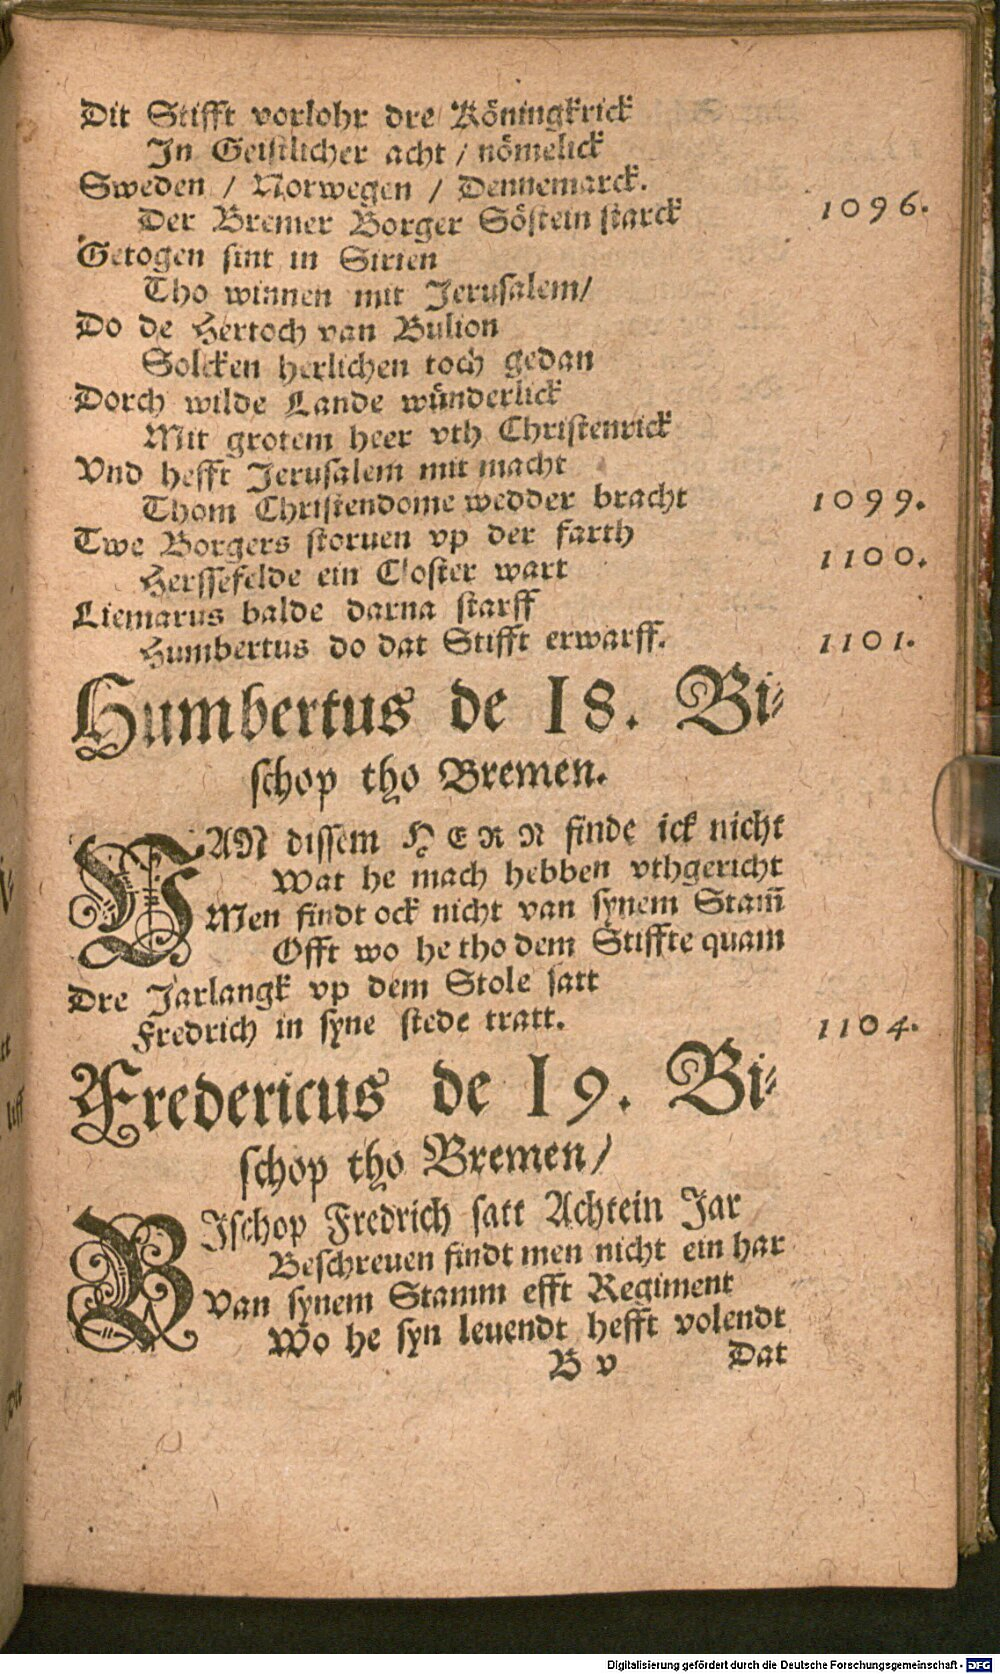 Dit Stifft vorlohr dre Köningkrick
In Geistlicher acht / nömelick
Sweden / Norwegen / Dennemarck.
Der Bremer Borger Söstein starck 1096.
Getogen sint in Sirien
Tho winnen mit Jerusalem/
Do de Hertoch van Bulion
Solcken herlichen toch gedan
Dorch wilde Lande wünderlick
Mit grotem heer vth Christenrick
Vnd hefft Jerusalem mit macht
Thom Christendome wedder bracht 1099.
Twe Borgers storuen vp der farth
Herssefelde ein Closter wart 1100.
Liemarus balde darna starff
Humbertus do dat Stifft erwarff. 1101.
Humbertus de 18. Bi-
schop tho Bremen.
VAN dissem HERN finde ick nicht
Wat he mach hebben vthgericht
Men findt ock nicht van synem Stam̄
Offt wo he tho dem Stiffte quam
Dre Jarlangk vp dem Stole satt
Fredrich in syne stede tratt. 1104.
Fredericus de 19. Bi-
schop tho Bremen/
BJschop Fredrich satt Achtein Jar
Beschreuen findt men nicht ein har
Van synem Stamm efft Regiment
Wo he syn leuendt hefft volendt
B v Dat
Digitalisierung gefördert durch die Deutsche Forschungsgemeinschaft - DFG